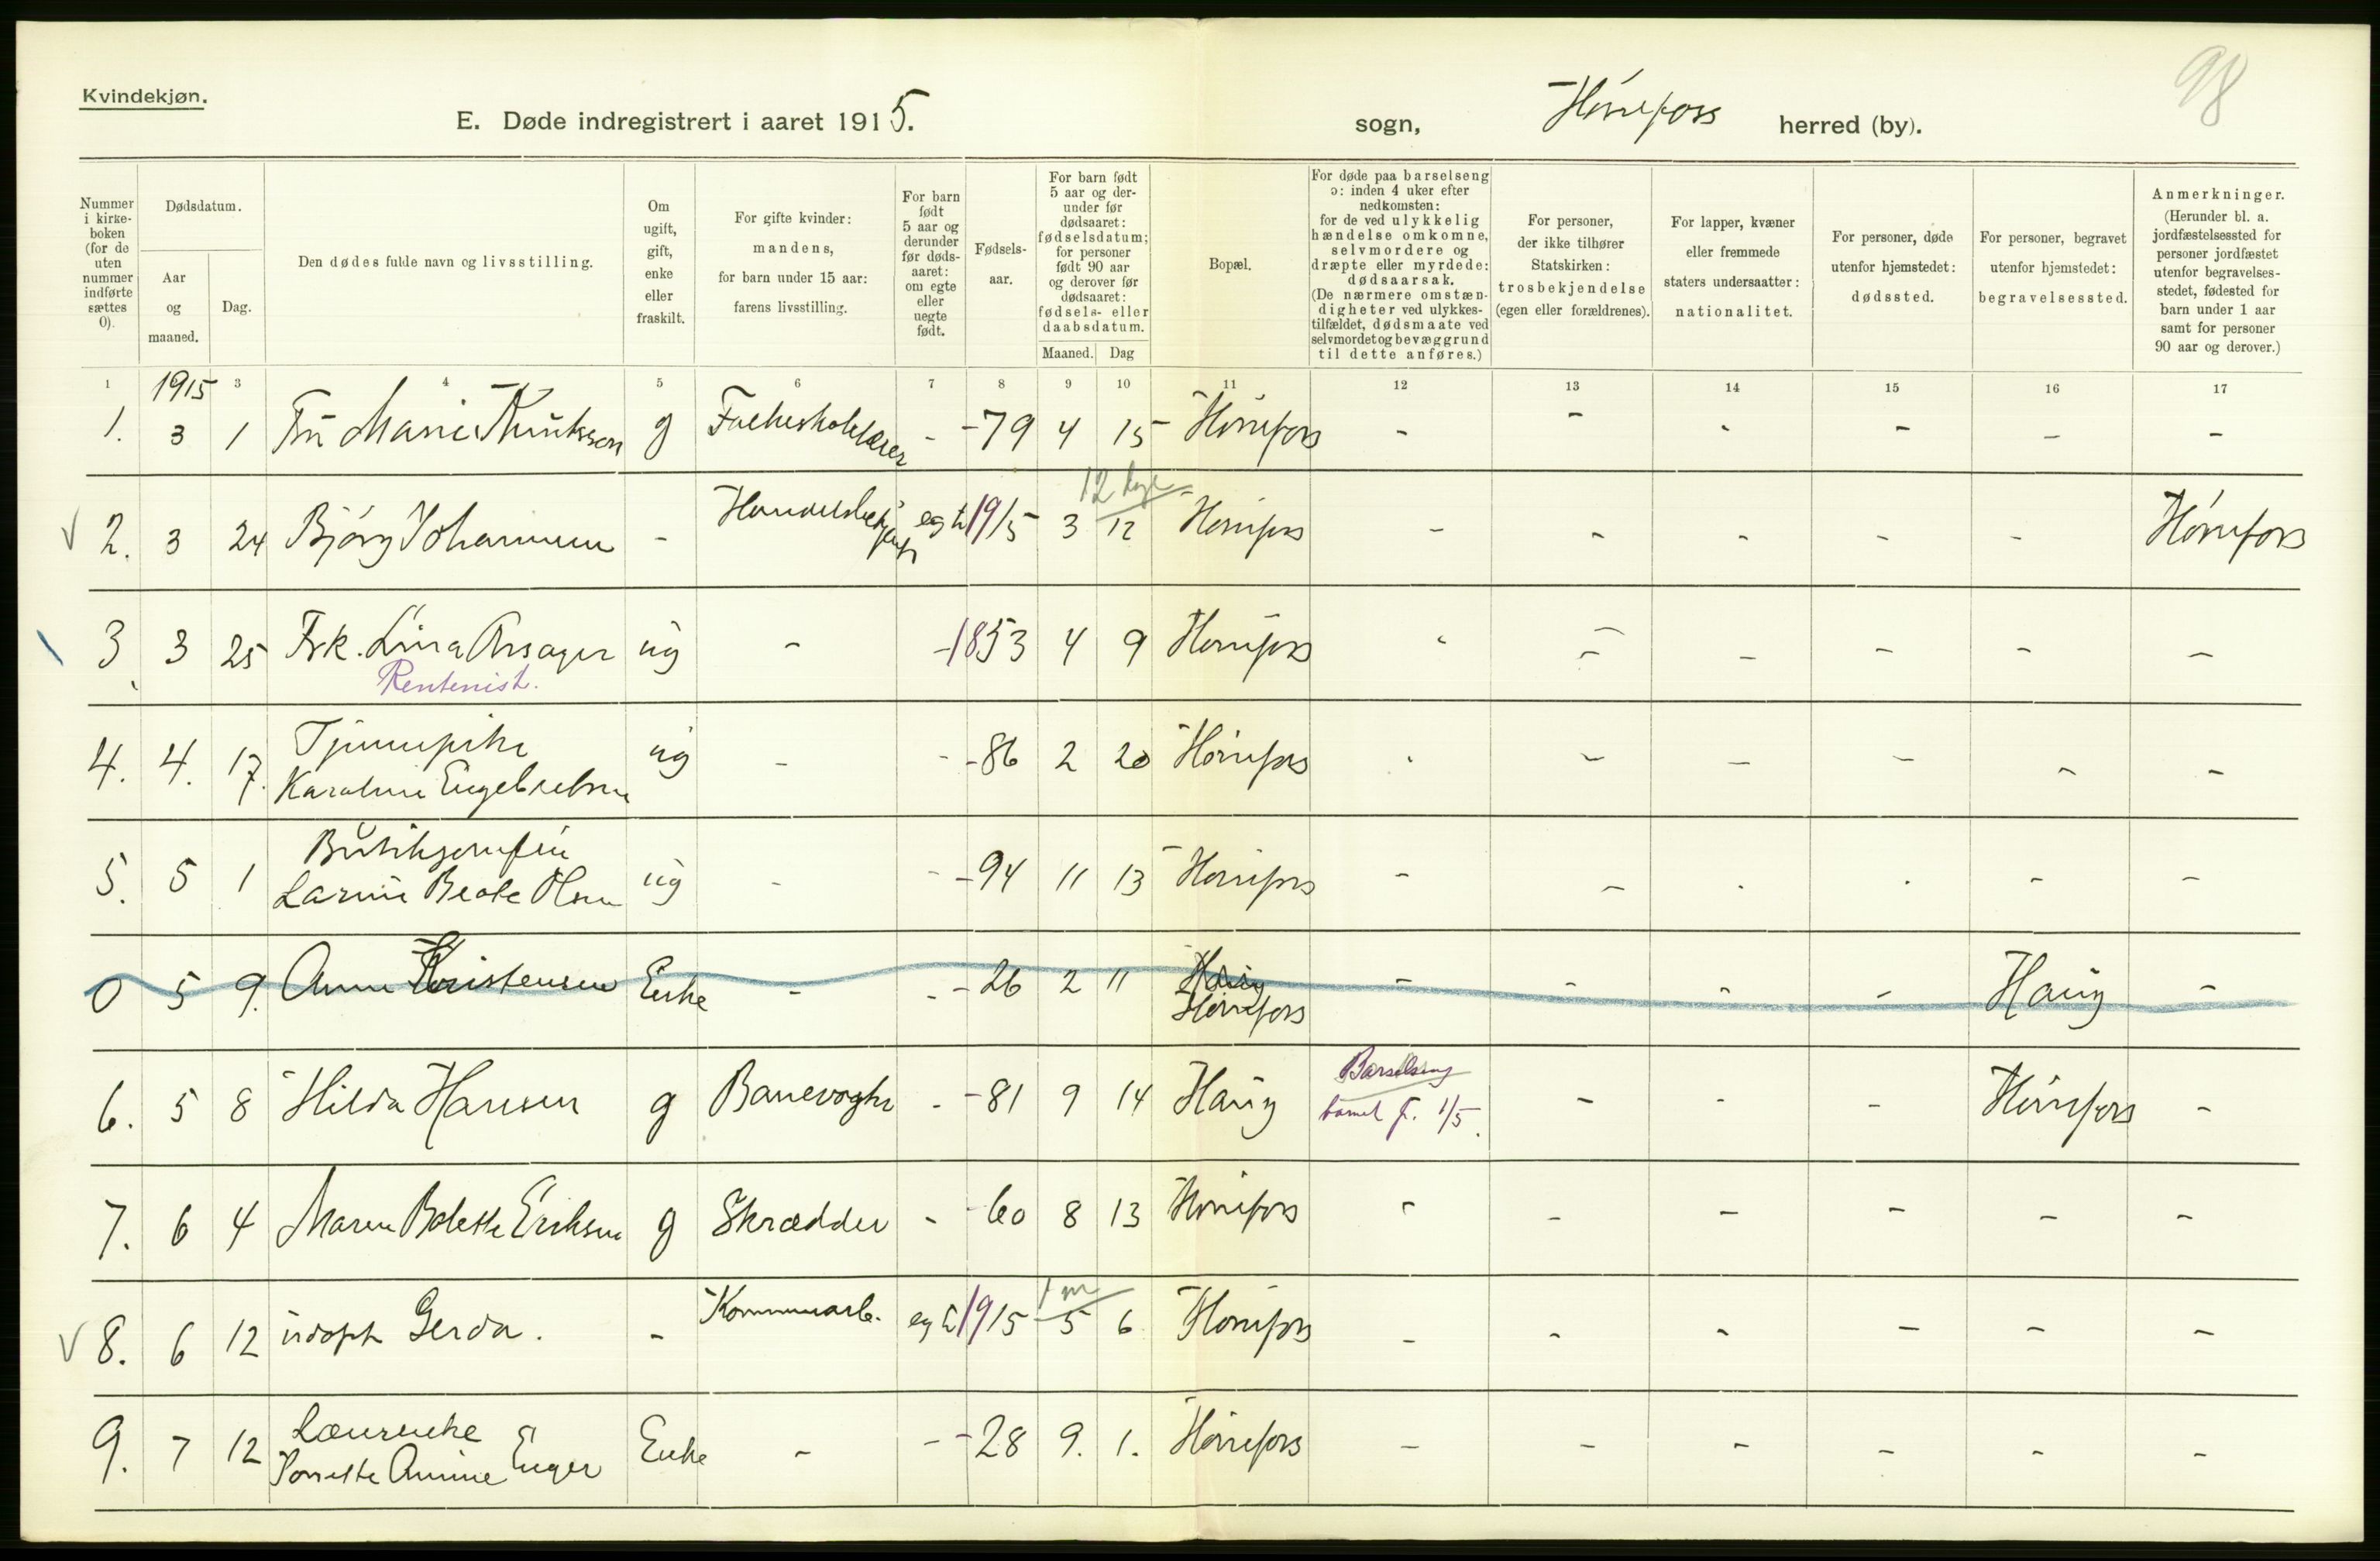 98
Kvindekjøn.
E. Døde indregistrert i aaret 1915.
sogn, Hönefoss herred (by).
Nummer i kirkeboken (for de uten nummer indførte sættes 0).
Dødsdatum.
Aar og maaned.
Dag.
Den dødes fulde navn og livsstilling.
Om ugift, gift, enke eller fraskilt.
For gifte kvinder: mandens, for barn under 15 aar: farens livsstilling.
For barn født 5 aar og derunder før dødsaaret: om egte eller uegte født.
Fødselsaar.
For barn født 5 aar og derunder før dødsaaret: fødselsdatum; for personer født 90 aar og derover før dødsaaret: fødsels- eller daabsdatum.
Maaned. Dag
Bopæl.
For døde paa barselseng ɔ: inden 4 uker efter nedkomsten: for de ved ulykkelig hændelse omkomne, selvmordere og dræpte eller myrdede: dødsaarsak. (De nærmere omstændigheter ved ulykkestilfældet, dødsmaate ved selvmordet og bevæggrund til dette anføres.)
For personer, der ikke tilhører Statskirken: trosbekjendelse (egen eller forældrenes).
For lapper, kvæner eller fremmede staters undersaatter: nationalitet.
For personer, døde utenfor hjemstedet: dødssted.
For personer, begravet utenfor hjemstedet: begravelsessted.
Anmerkninger. (Herunder bl. a. jordfæstelsessted for personer jordfæstet utenfor begravelsesstedet, fødested for barn under 1 aar samt for personer 90 aar og derover.)
1 3 4 5 6 7 8 9 10 11 12 13 14 15 16 17
1915
1. 3 1 Frú Marie Knutsson g Folkeskolelærer - -79 4 15 Hönefoss - - - - - -
12 dage
2. 3 24 Björg Johannesen - Handelsbetjent egte 1915 3 12 Hönefoss - - - - - Hönefoss
3. 3 25 Frk. Lina Arsager ug - -1853 4 9 Hönefoss - - - - - -
Rentenist.
4. 4. 17. Tjenestepike ug - - -86 2 20 Hönefoss - - - - - -
Karoline Engebretsen
5. 5 1 Butikjomfru ug - - -94 11 13 Hönefoss - - - - - -
Larine Beate Olsen
0 5 9. Anne Kristensen Enke - - -26 2 11 Haug - - - - Haug -
Hönefoss
6. 5 8 Hilda Hansen g Banevogter - -81 9 14 Haug Barselseng - - - Hönefoss -
barnet f. 1/5.
7. 6 4 Maren Bolette Eriksen g Skrædder - -60 8 13 Hönefoss - - - - - -
1 m
8. 6 12 údöpt Gerda. - Kommunearb. egte 1915 5 6 Hönefoss - - - - - -
9. 7 12 Laurenke Enke - - -28 9. 1. Hönefoss - - - - - -
Annine Enger